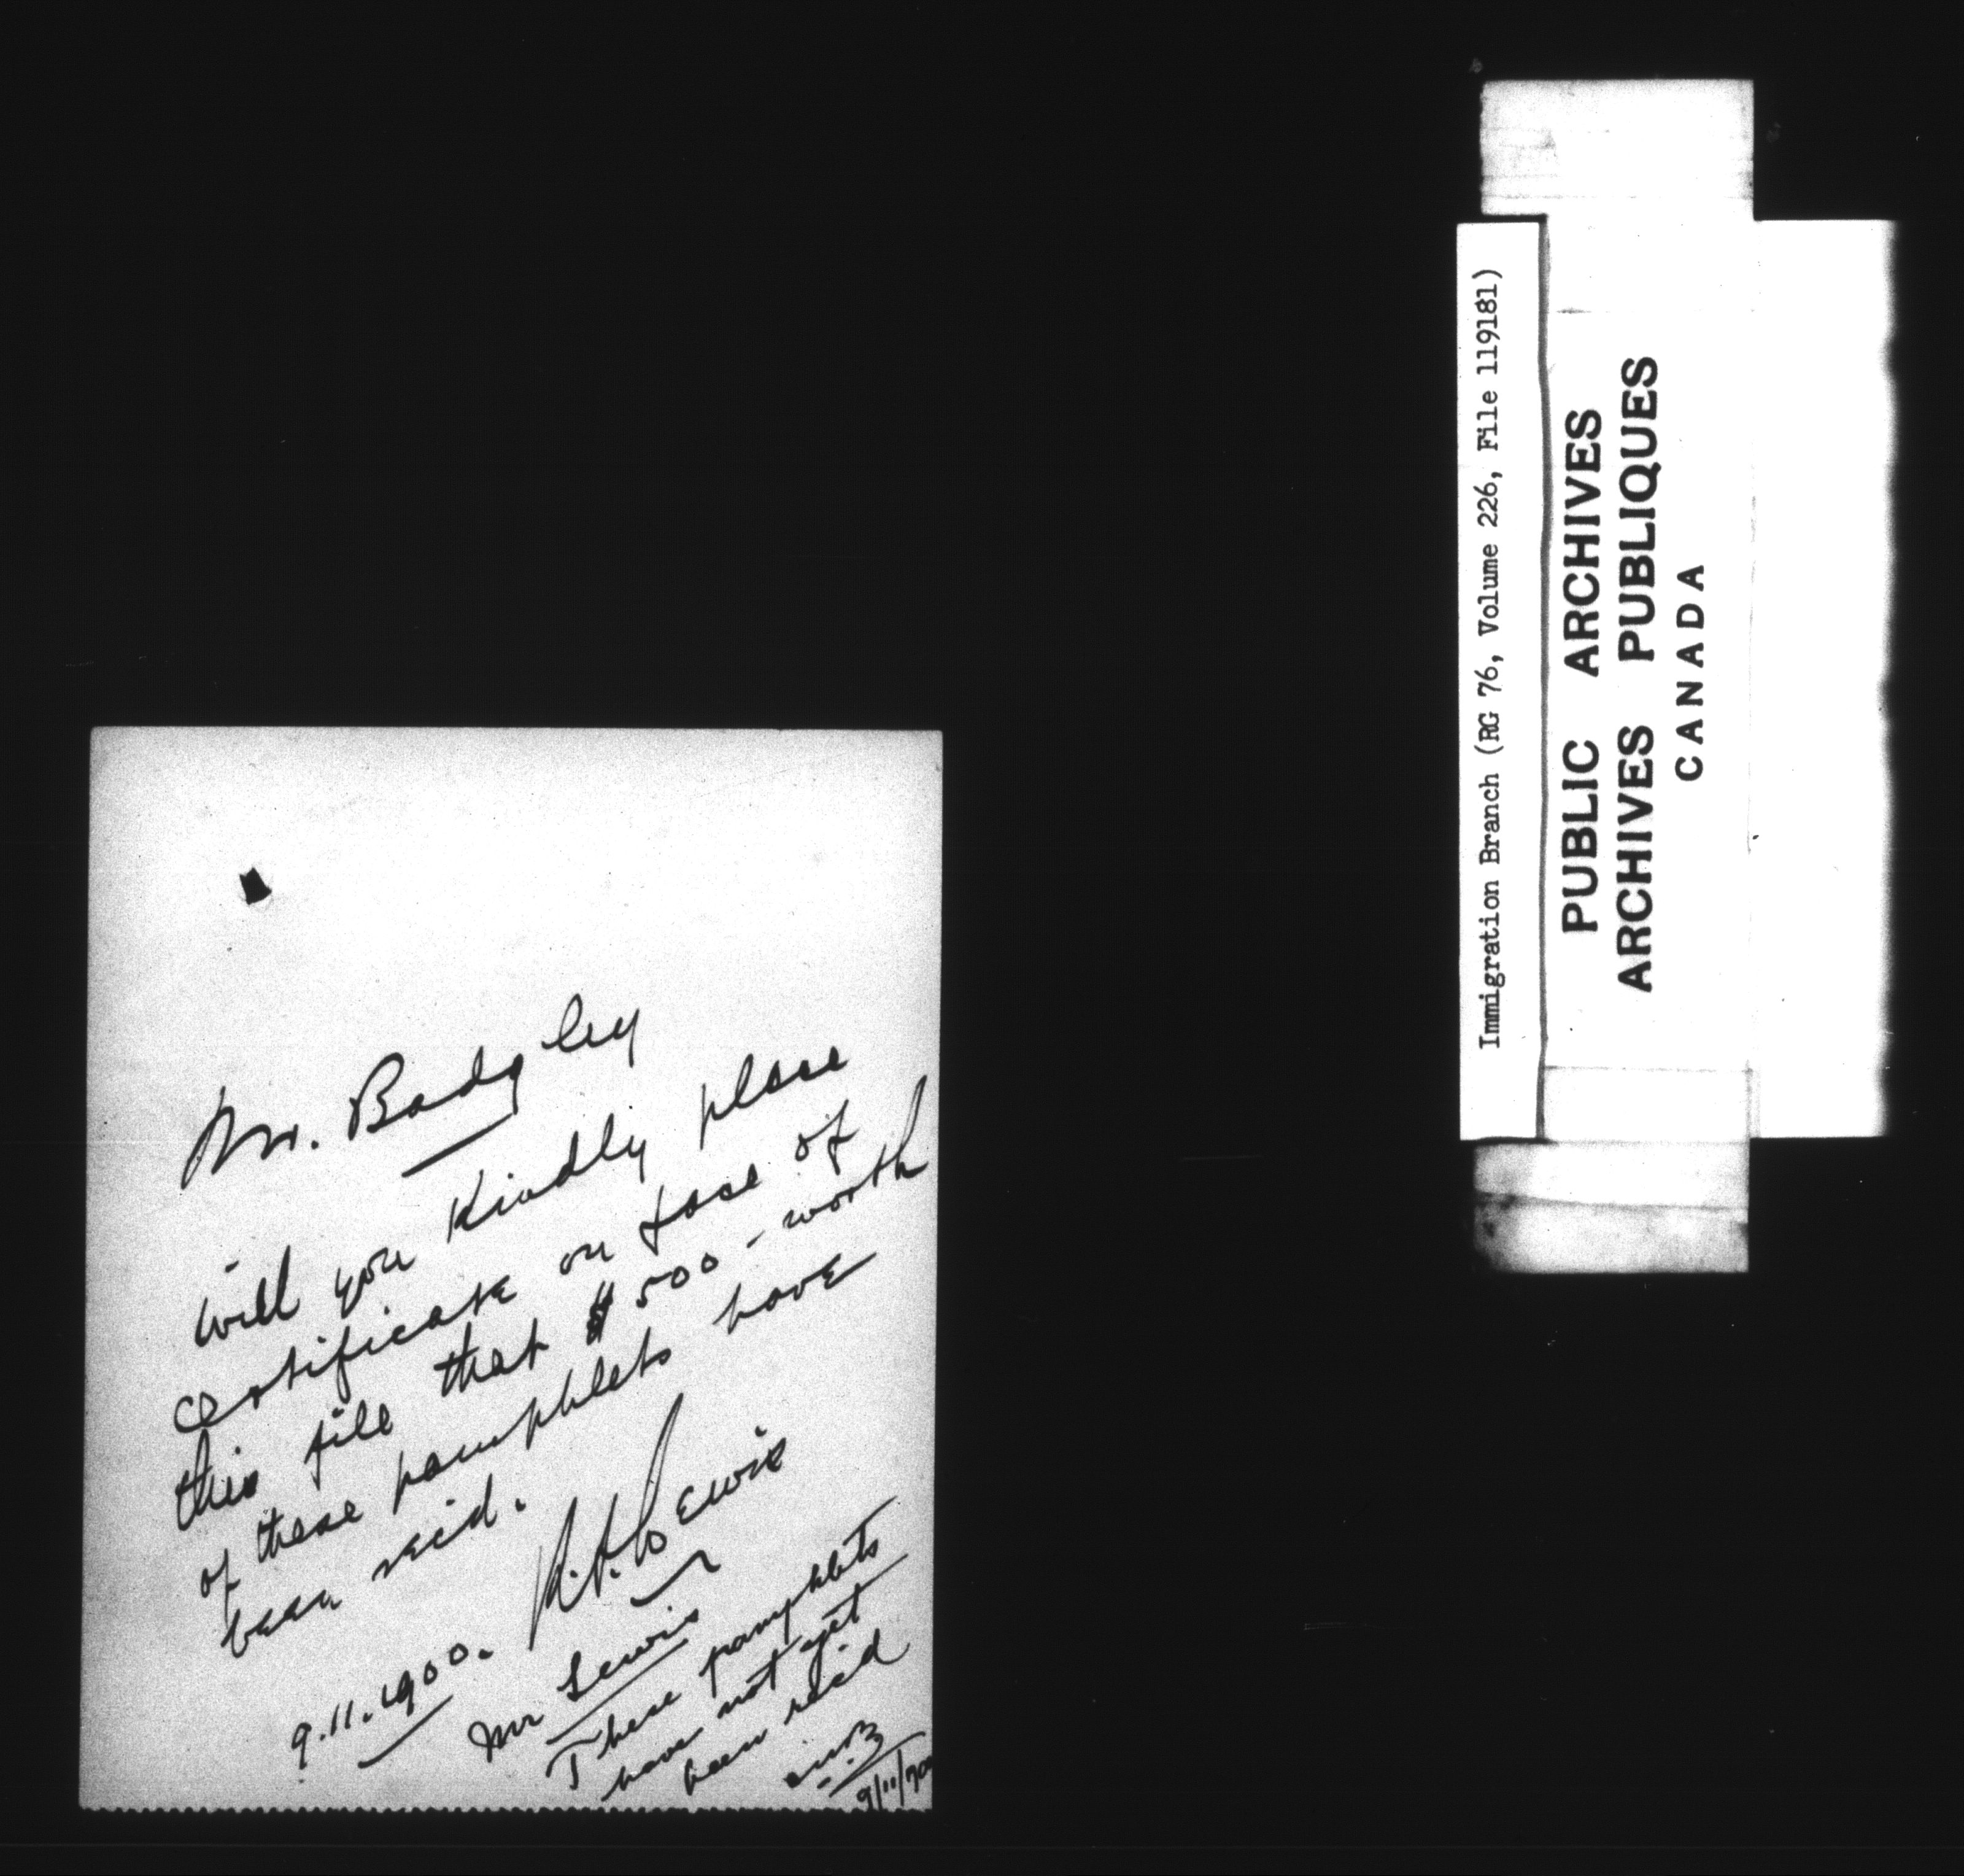 Mr. Badgley
Will you Kindly place
certificate on face of
this file that $500 - worth
of these pamphlets have
been recd.
Lewis
9.11.1900.
Mr Lewis
These pamphlets
have not yet
been rec'd
9/11/00
Immigration Branch (RG 76, Volume 226, File 119181)
PUBLIC ARCHIVES
ARCHIVES PUBLIQUES
CANADA